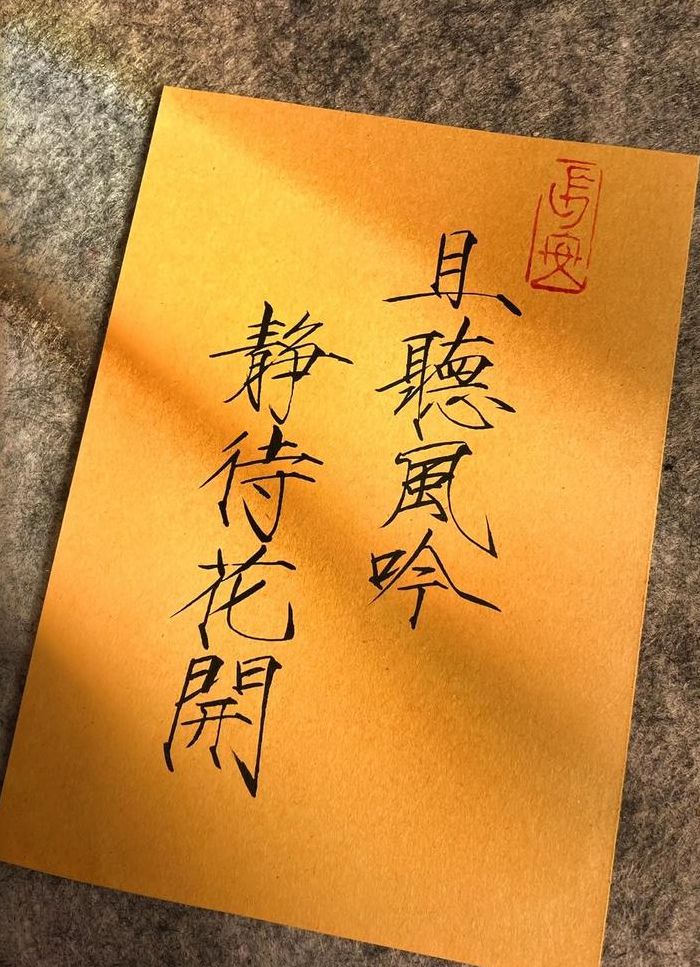 且聽風吟
靜待花開
長安